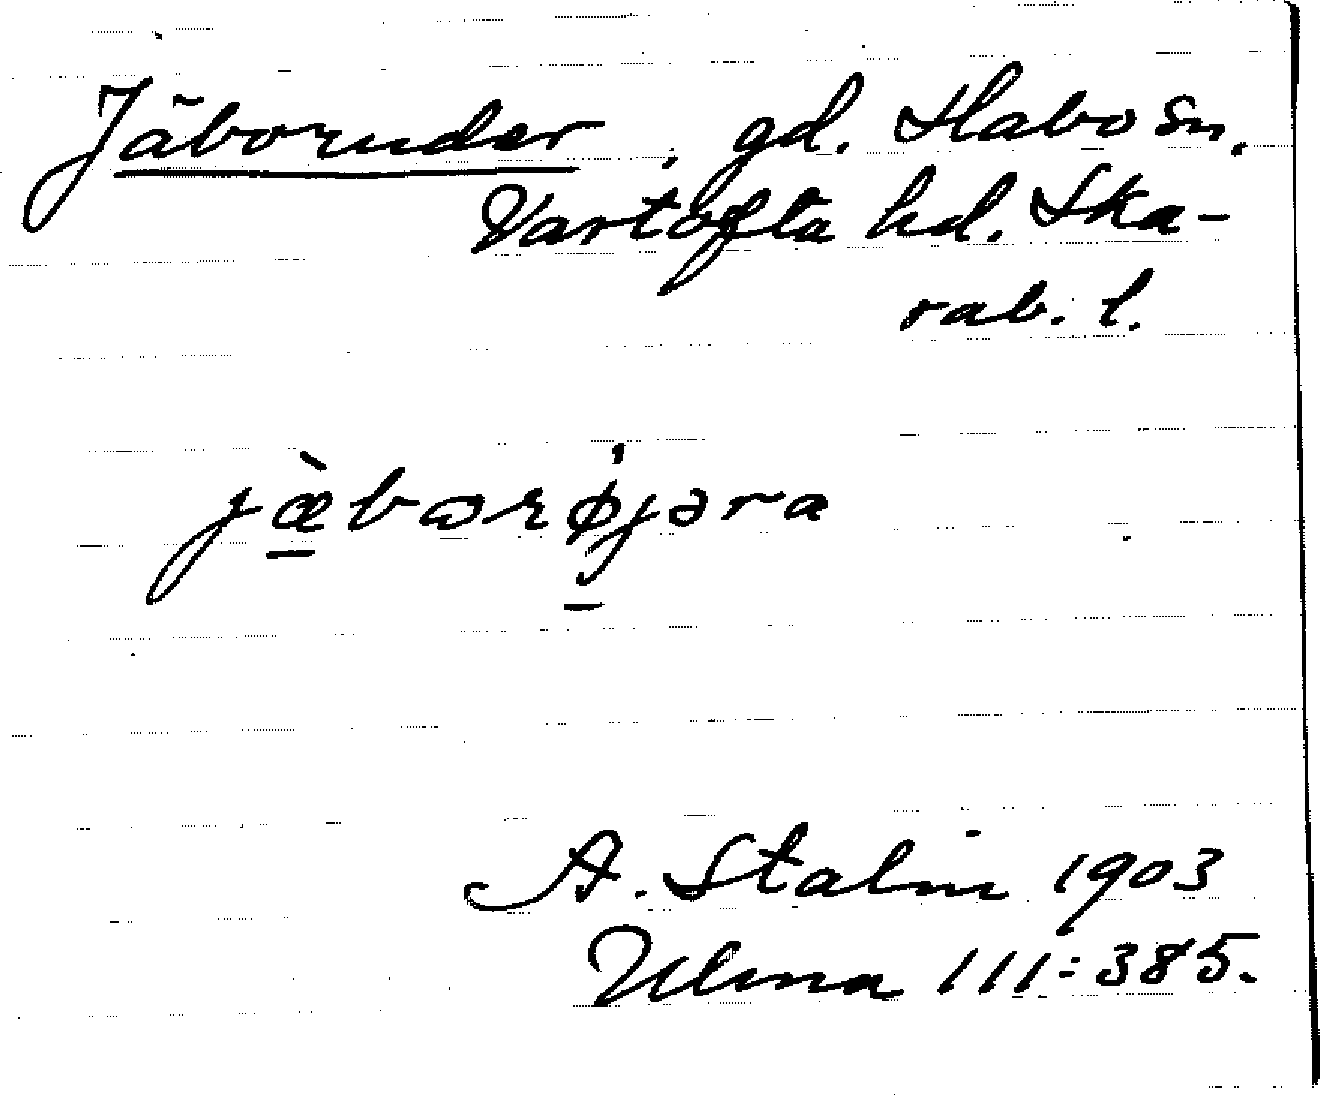 Jäboruder, gd. Habo sn.
Vartofta hd. Ska-
rab. l.
jæ̀barøjəra
A. Stalin 1903
Ulma 111:385.